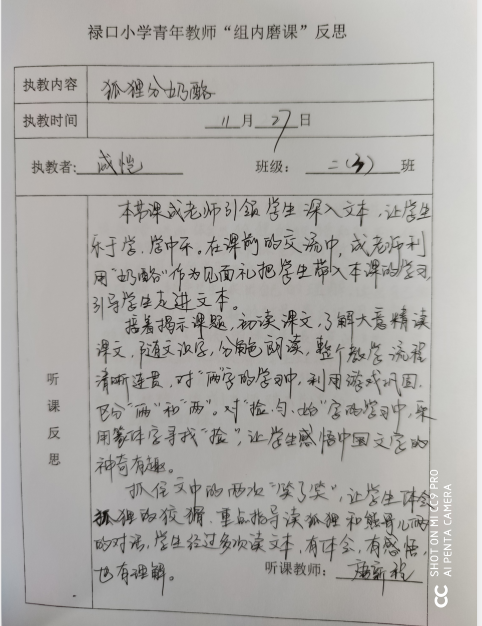 禄口小学青年教师“组内磨课”反思
执教内容 狐狸分奶酪
执教时间 11月27日
执教者: 成恺 班级: 二(3)班
听课反思
本节课成老师引领学生深入文本，让学生
乐于学，学中乐。在课前的交流中，成老师利
用“奶酪”作为见面礼把学生带入本课的学习，
引导学生走进文本。
接着揭示课题，初读课文，了解大意精读
课文，随文识字，分角色朗读，整个教学流程
清晰连贯，对“俩”字的学习中，利用游戏巩固，
区分“俩”和“两”。对“捡、匀、始”字的学习中，采
用篆体字寻找“捡”，让学生感悟中国文字的
神奇有趣。
抓住文中的两次“笑了笑”，让学生体会
狐狸的狡猾，重点指导读狐狸和熊哥儿俩
的对话，学生经过多次读文本，有体会，有感悟，
也有理解。 听课教师:
SHOT ON MI CC9 PRO
AI PENTA CAMERA